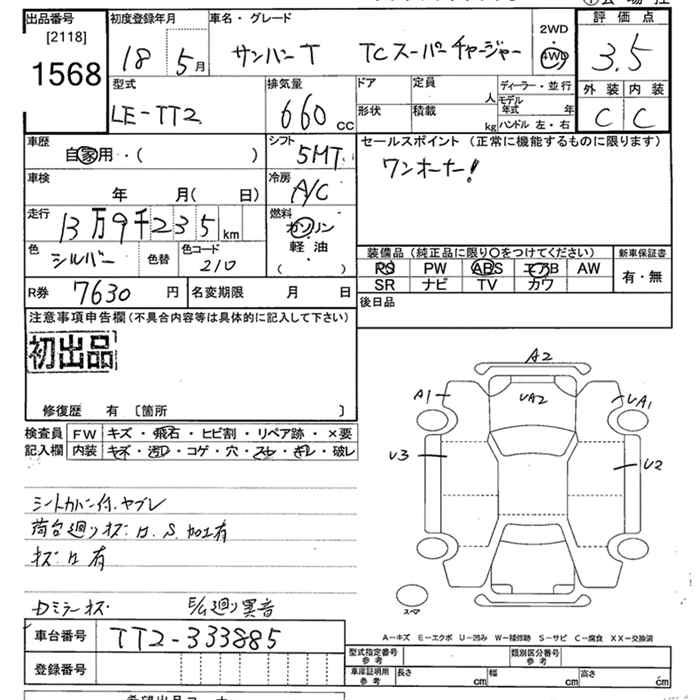 出品番号 初度登録年月 車名・グレード 2WD 評価点
[2118] 18 5月 サンバーT TCスーパーチャージャー 4WD 3.5
1568
型式 排気量 ドア 定員 人 ディーラー・並行 外装 内装
LE-TT2 660cc 形状 積載 kg モデル年式 年 C C
ハンドル 左・右
車歴 シフト セールスポイント (正常に機能するものに限ります)
自家用・( ) 5MT ワンオーナー!
車検 冷房
年 月( 日) A/C
走行 燃料
13万9千235km ガソリン
色 色替 色コード 軽油
シルバー 210 ( ・ )
装備品 (純正品に限り○をつけてください) 新車保証書
PS PW ABS エアB AW 有・無
SR ナビ TV カワ
R券 7630円 名変期限 月 日 後日品
注意事項申告欄 (不具合内容等は具体的に記入して下さい)
初出品
修復歴 有 [箇所 ]
検査員 FW キズ・飛石・ヒビ割・リペア跡・×要
記入欄 内装 キズ・汚れ・コゲ・穴・スレ・ギレ・破レ
A2
A1 UA2 UA1
U3 U2
シートカバー付、ヤブレ
荷台廻りキズ・ロ、S、加工有
キズ・ロ有
ロミラーキズ・ E/G廻り異音
スペア
A-キズ E-エクボ U-凹み W-補修跡 S-サビ C-腐食 XX-交換済
車台番号 TT2-333885
型式指定番号 参考 類別区分番号 参考
登録番号 車庫証明用 参考 長さ cm 幅 cm 高さ cm